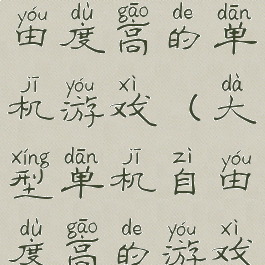 yóu dù gāo de dān
由度高的单
jī yóu xì dà
机游戏（大
xíng dān jī zì yóu
型单机自由
dù gāo de yóu xì
度高的游戏